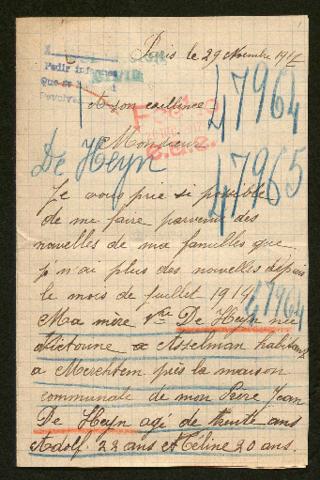 Paris le 29 Novembre 191
Pedir informes
47964
a son exellence
47965
Monsieur
De Heyn
Je vous prie si possible
de me faire parvenir des
nouvelles de ma familles que
j'n'ai plus des nouvelles depuis
le mois de juillet 1914
47964
Ma mère Vve De Heyn née
Victorine Asselman habitant
a Merchtem près la maison
communale de mon frere Jean
De Heyn agé de trente ans
Adolf. 22 ans Méline 20 ans.